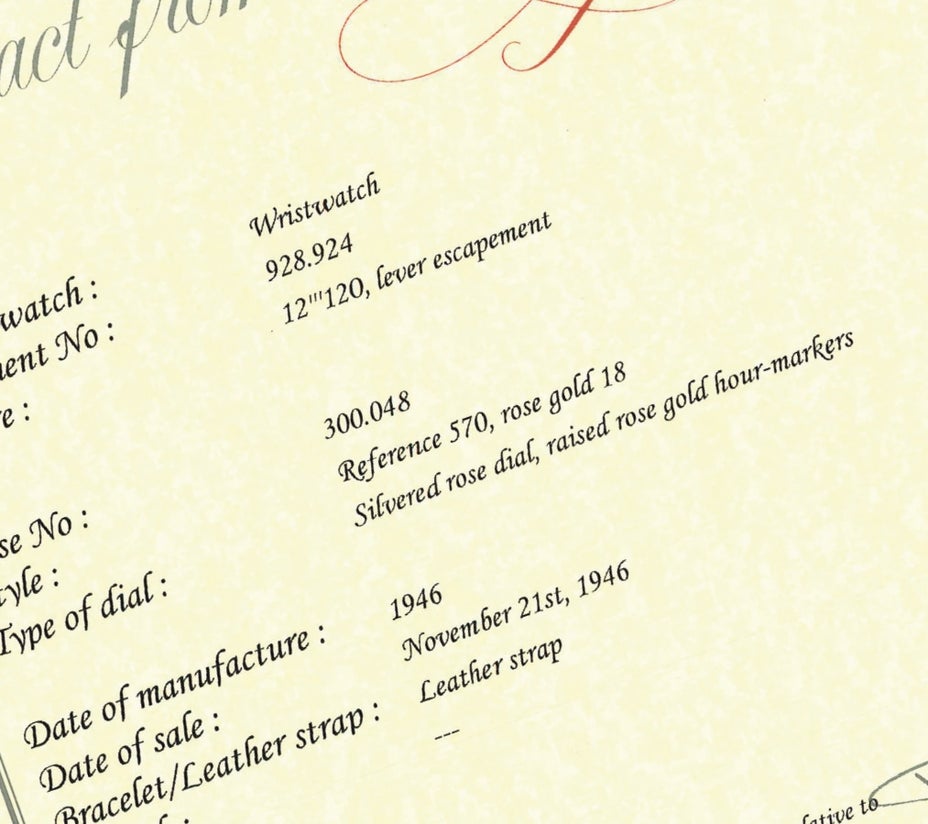 act from
Wristwatch
watch : 928.924
ent No : 12'''120, lever escapement
e :
300.048
se No : Reference 570, rose gold 18
tyle : Silvered rose dial, raised rose gold hour-markers
Type of dial :
Date of manufacture : 1946
Date of sale : November 21st, 1946
Bracelet/Leather strap : Leather strap
---
lative to